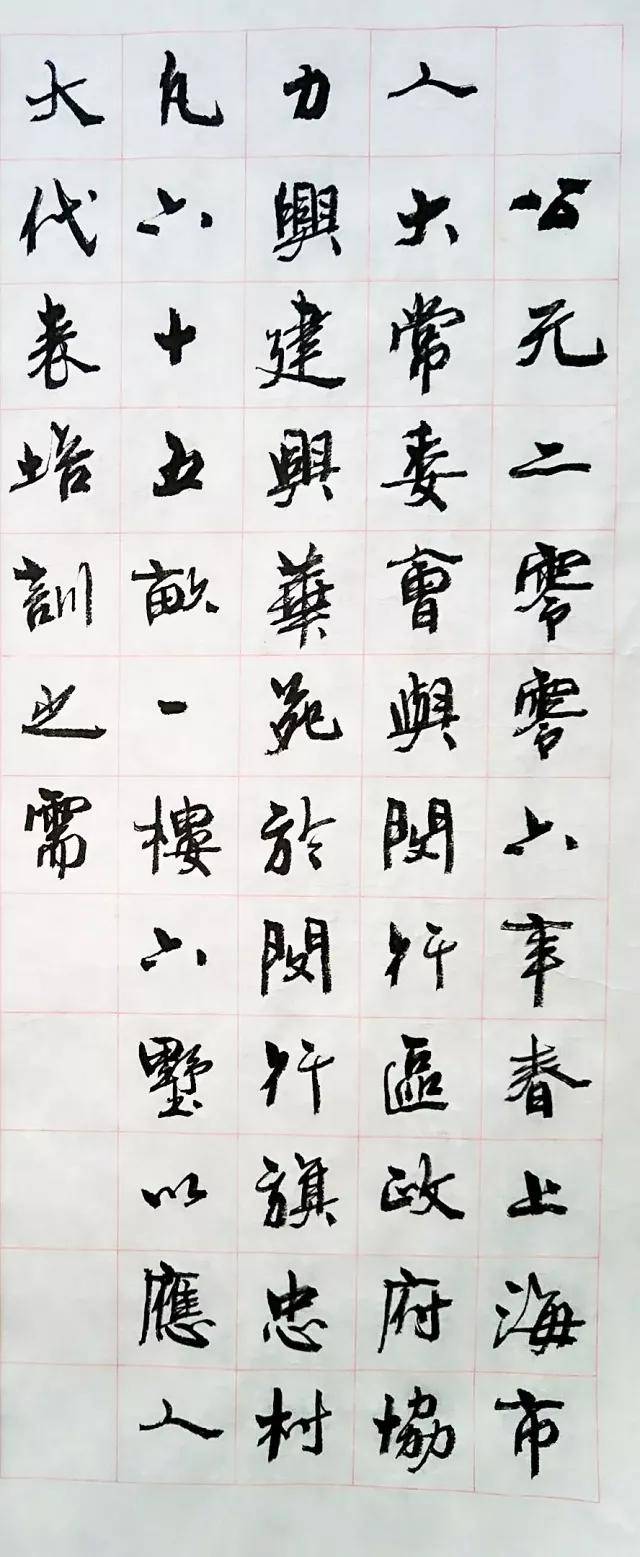 公元二零零六年春上海市
人大常委會與閔行區政府協
力興建興華苑於閔行旗忠村
凡六十五畝一樓六墅以應人
大代表培訓之需